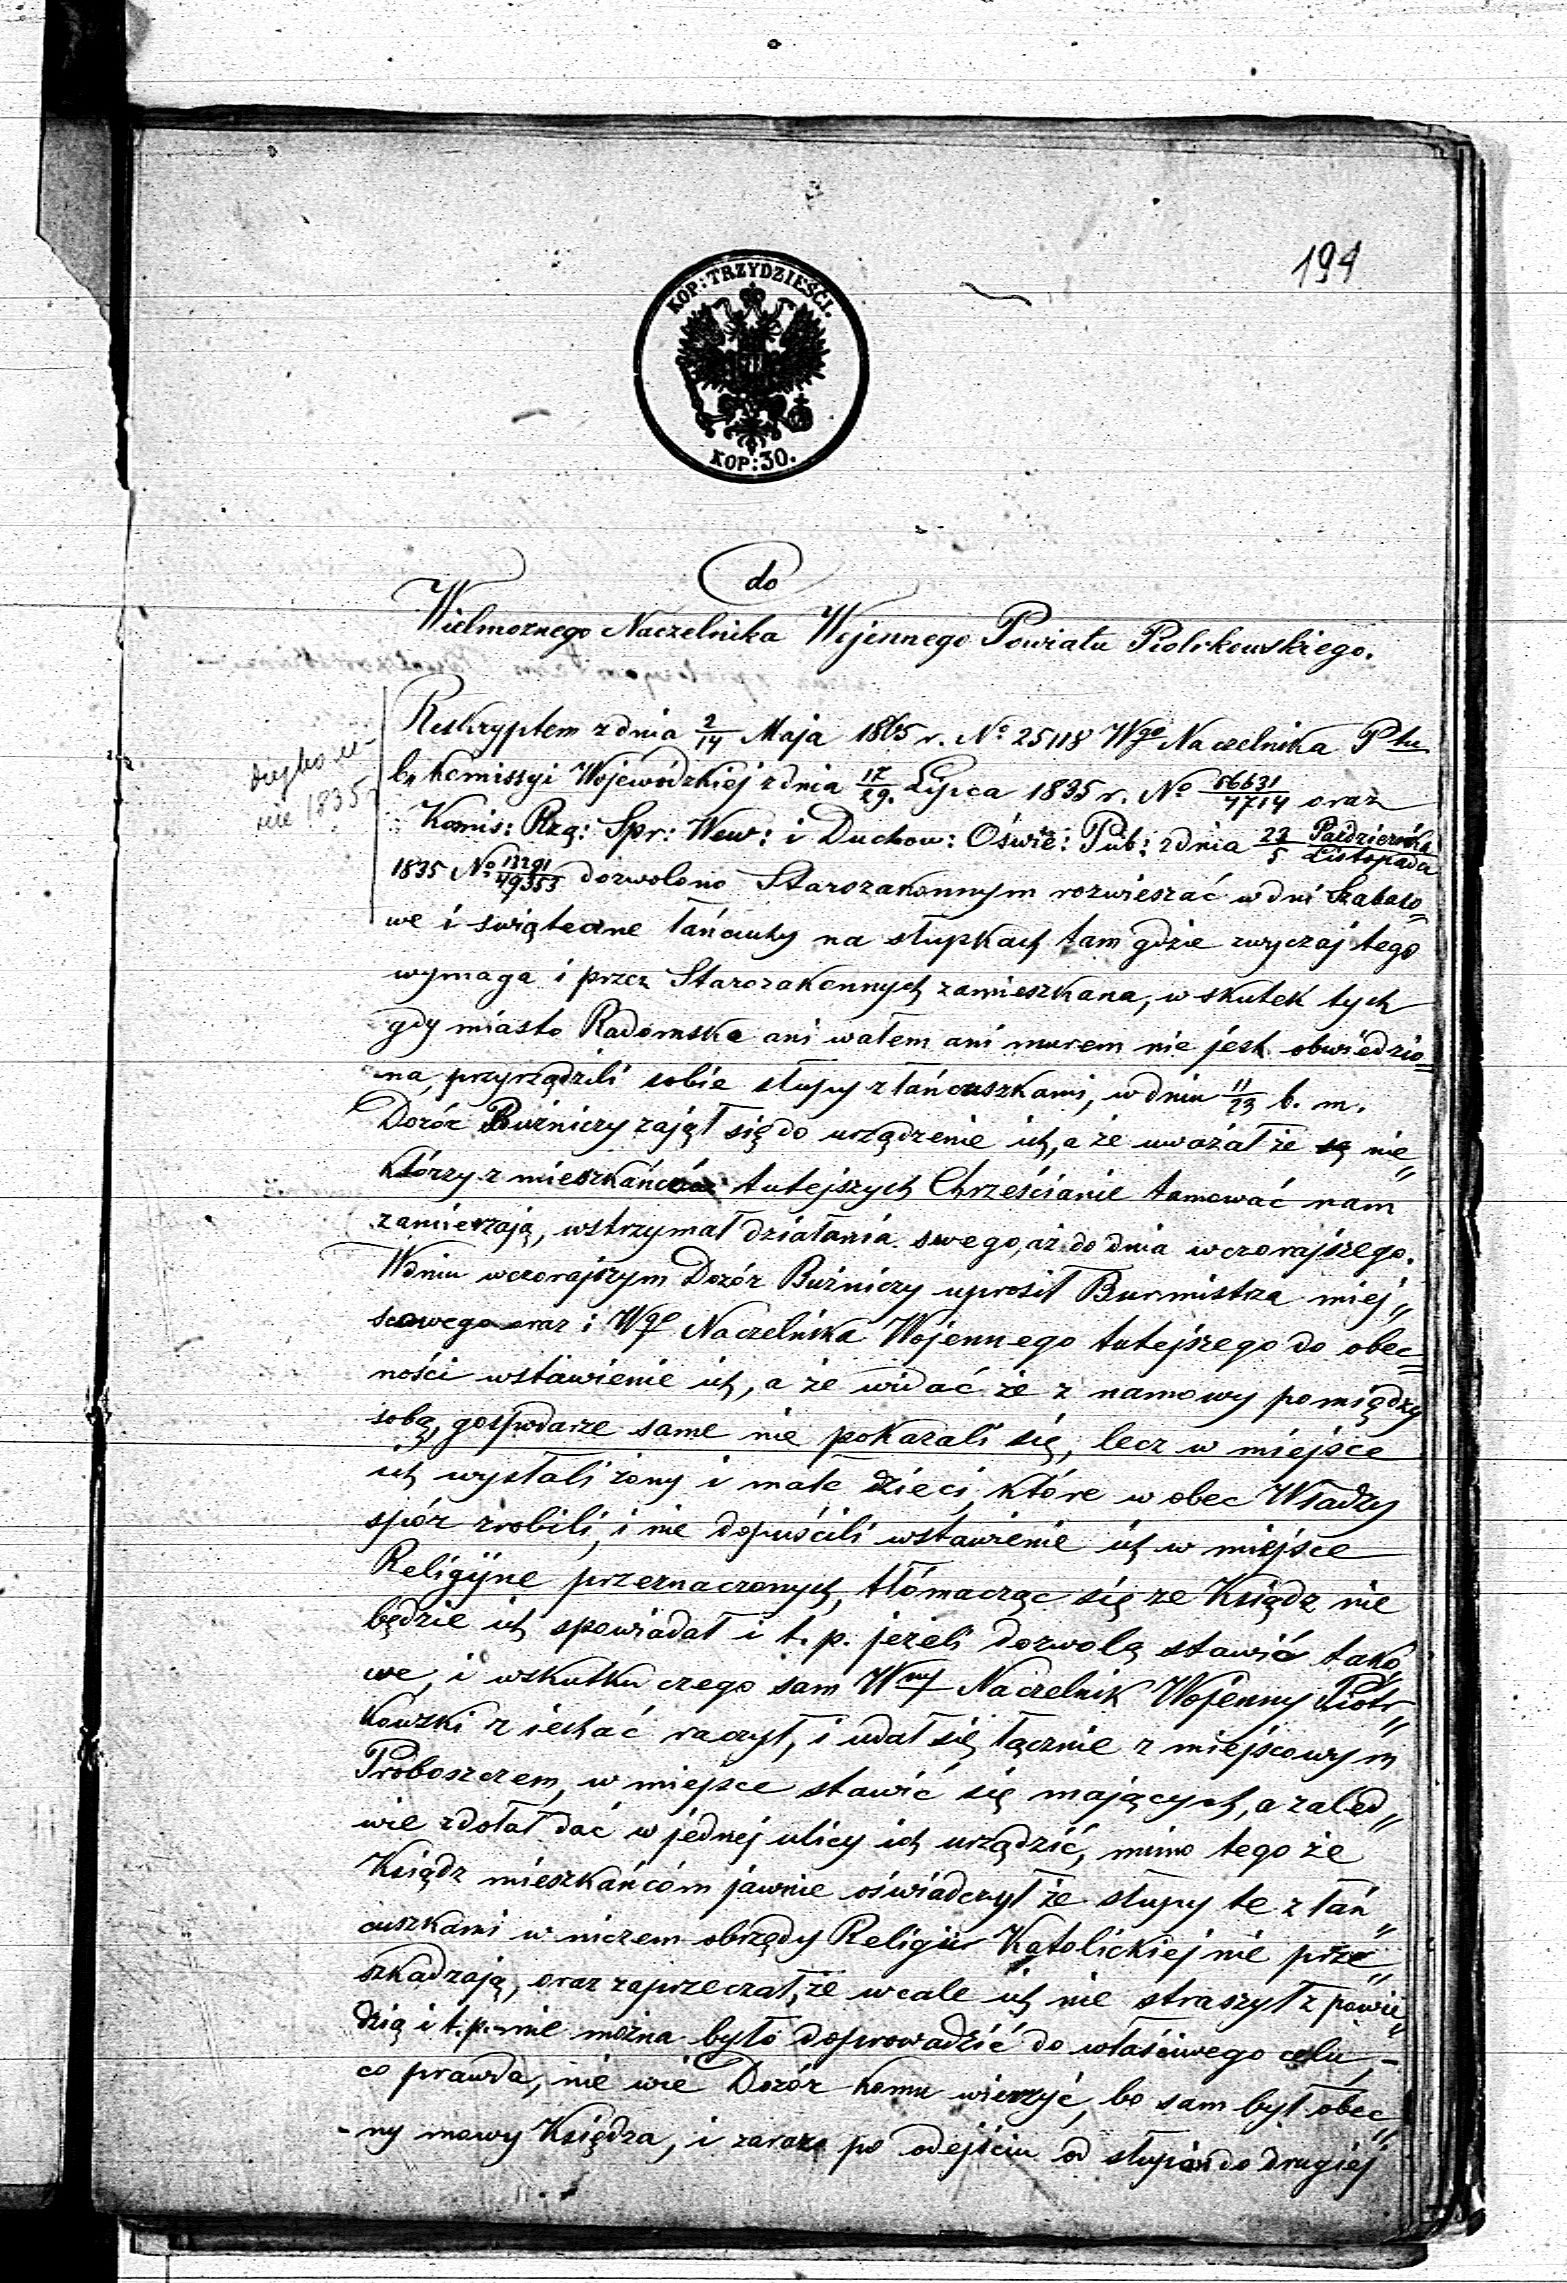 194
KOP: TRZYDZIEŚCI.
KOP: 30.
do
Wielmożnego Naczelnika Wojennego Powiatu Piotrkowskiego.
Reskryptem z dnia 2/14 Maja 1865 r. No 25118 Wgo Naczelnika Ptu
b. Komissyi Wojewódzkiej z dnia 17/29. Lipca 1835 r. No 56631/7714 oraz
1835
Komis: Rzą: Spr: Wew: i Duchow: Oświe: Pub: z dnia 23/5 Października/Listopada
1835 No 13291/49353 dozwolono Starozakonnym rozwieszać w dni Szabaso„
we i świąteczne łańcuchy na słupkach tam gdzie zwyczaj tego
wymaga i przez Starozakonnych zamieszkana, w skutek tych
gdy miasto Radomsko ani wałem ani murem nie jest obwiedzio„
na, przyrządzili sobie słupy z łańcuszkami, w dniu 11/23 b. m.
Dozór Bużniczy zajął się do urządzenie ich, a że uważał że są nie„
którzy z mieszkańców tutejszych Chrześcianie tamować nam
zamierzają, wstrzymał działania swego, aż do dnia wczorajszego.
W dniu wczorajszym Dozór Bużniczy uprosił Burmistrza miej„
scowego oraz i Wgo Naczelnika Wojennego tutejszego do obec„
ności wstawienie ich, a że widać że z namowy pomiędzy
sobą, gospodarze same nie pokazali się, lecz w miejsce
ich wysłali żony i małe dzieci, które w obec Władzy
spór zrobili, i nie dopuścili wstawienie ich w miejsce
Religijne przeznaczonych, tłómacząc się że Ksiądz nie
będzie ich spowiadał i t. p. jeżeli dozwolą stawić tako„
we, i wskutku czego sam Wny Naczelnik Wojenny Piotr„
kowski ziechać raczył, i udał się łącznie z miejscowym
Proboszczem, w miejsce stawić się mających, a zaled„
wie zdołał dać w jednej ulicy ich urządzić, mimo tego że
Ksiądz mieszkańcóm jawnie oświadczył że słupy te z łań„
cuszkami w niczem obrzędy Religii Katolickiej nie prze„
szkadzają, oraz zaprzeczał, że wcale ich nie straszył z powie„
dzią i t. p. nie można było doprowadzić do właściwego celu,-
co prawda, nie wie Dozór komu wierzyć, bo sam był obec„
-ny mowy Księdza, i zaraz po odejściu od słupów do drugiej